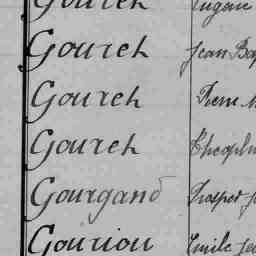 Goureh Eugène
Goureh Jean Bap
Goureh Pierre
Goureh Théophi
Gourgand Prosper J
Gouriou Emile